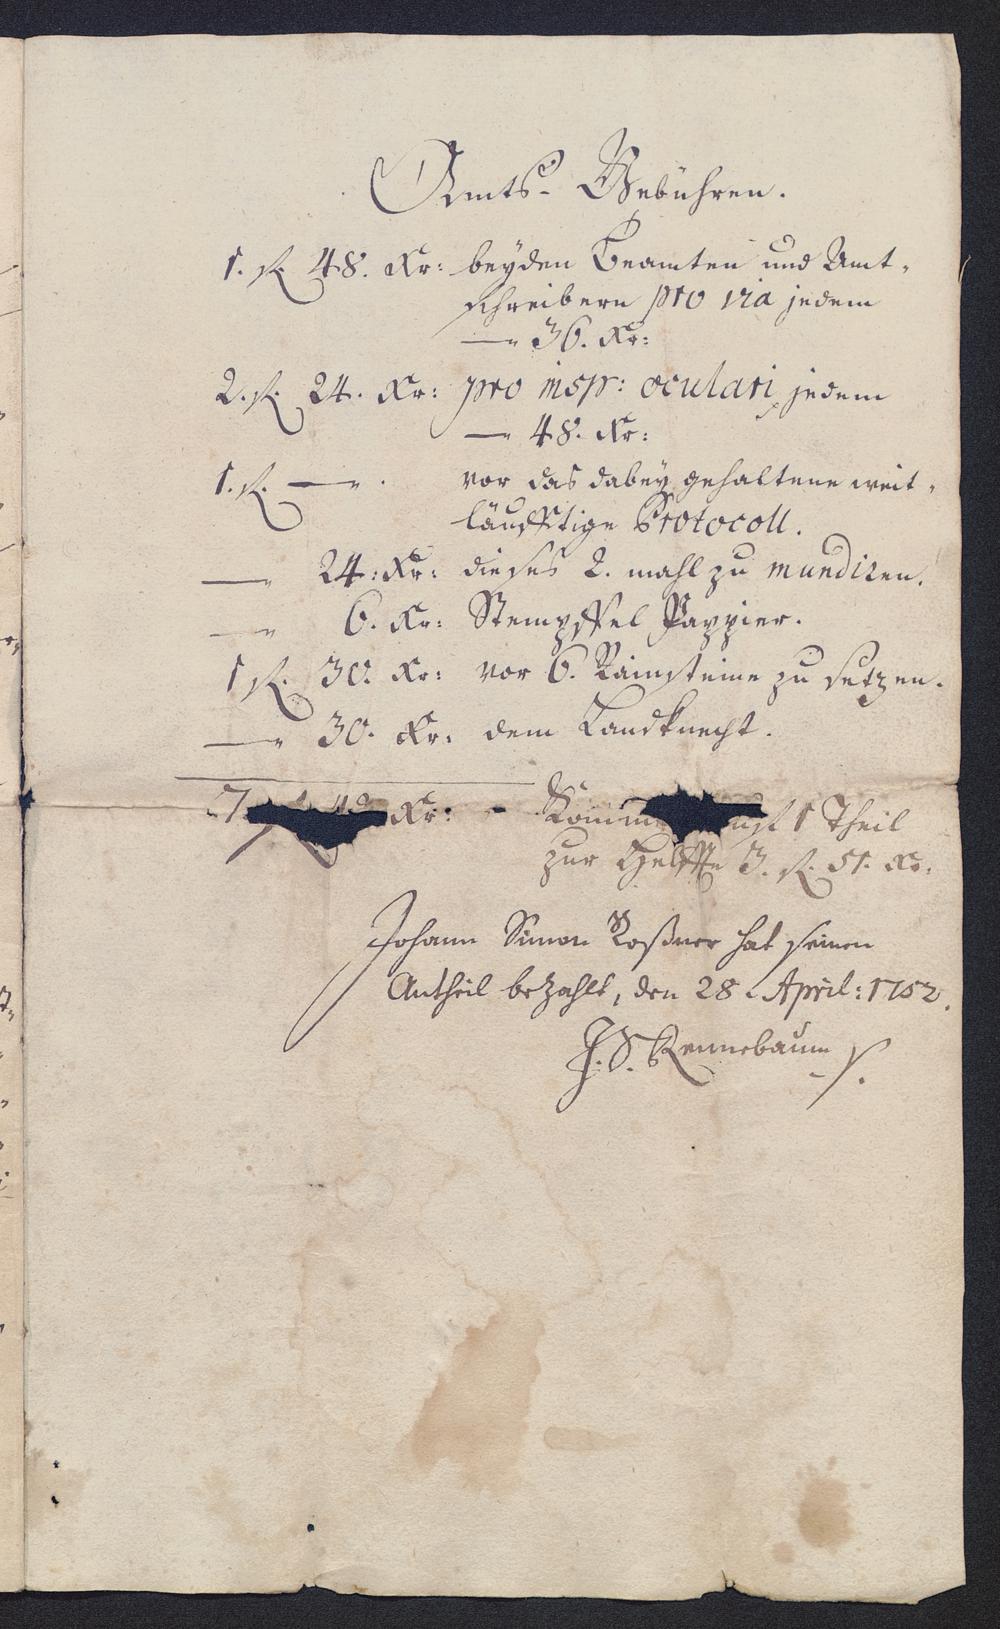 Amts- Gebühren.
1. fl. 48. Kr: beyden Beamten und Amt-
schreibern pro via jedem
— 36. Kr:
2. fl. 24. Kr: pro insp: oculari jedem
— 48. Kr:
1. fl. — . vor das dabey gehaltene weit-
läufftige Protocoll.
— 24: Kr: dieses 2. mahl zu mundiren.
— 6. Kr: Stempffel Pappier.
1 fl. 30. Kr: vor 6. Rainsteine zu setzen.
— 30. Kr: dem Landknecht.
7 Kr: - 1 Theil
zur Helffte 3. fl. 51. Kr:
Johann Simon Roßner hat seinen
Antheil bezahlt, den 28. April: 1752.
J. S. Rennebaum